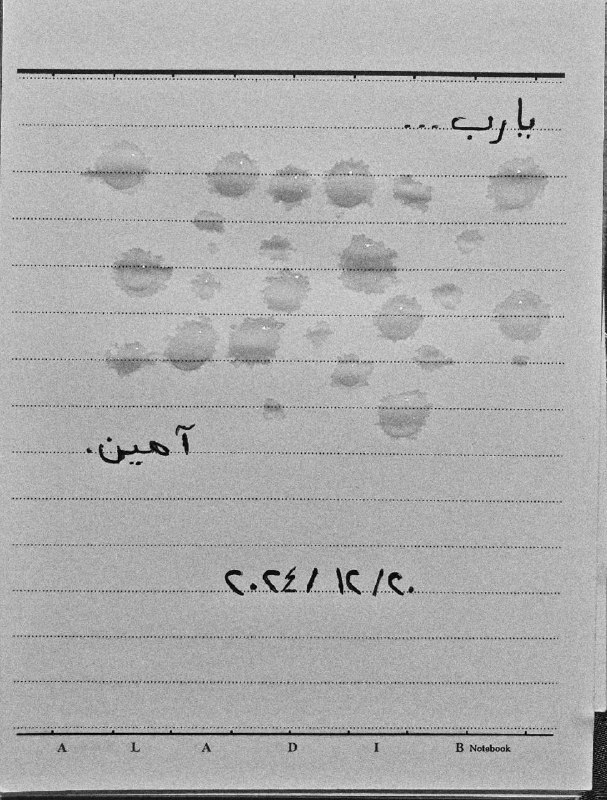 يارب...
آمين.
٢٠/١٢/٢٠٢٤
A L A D I B Notebook